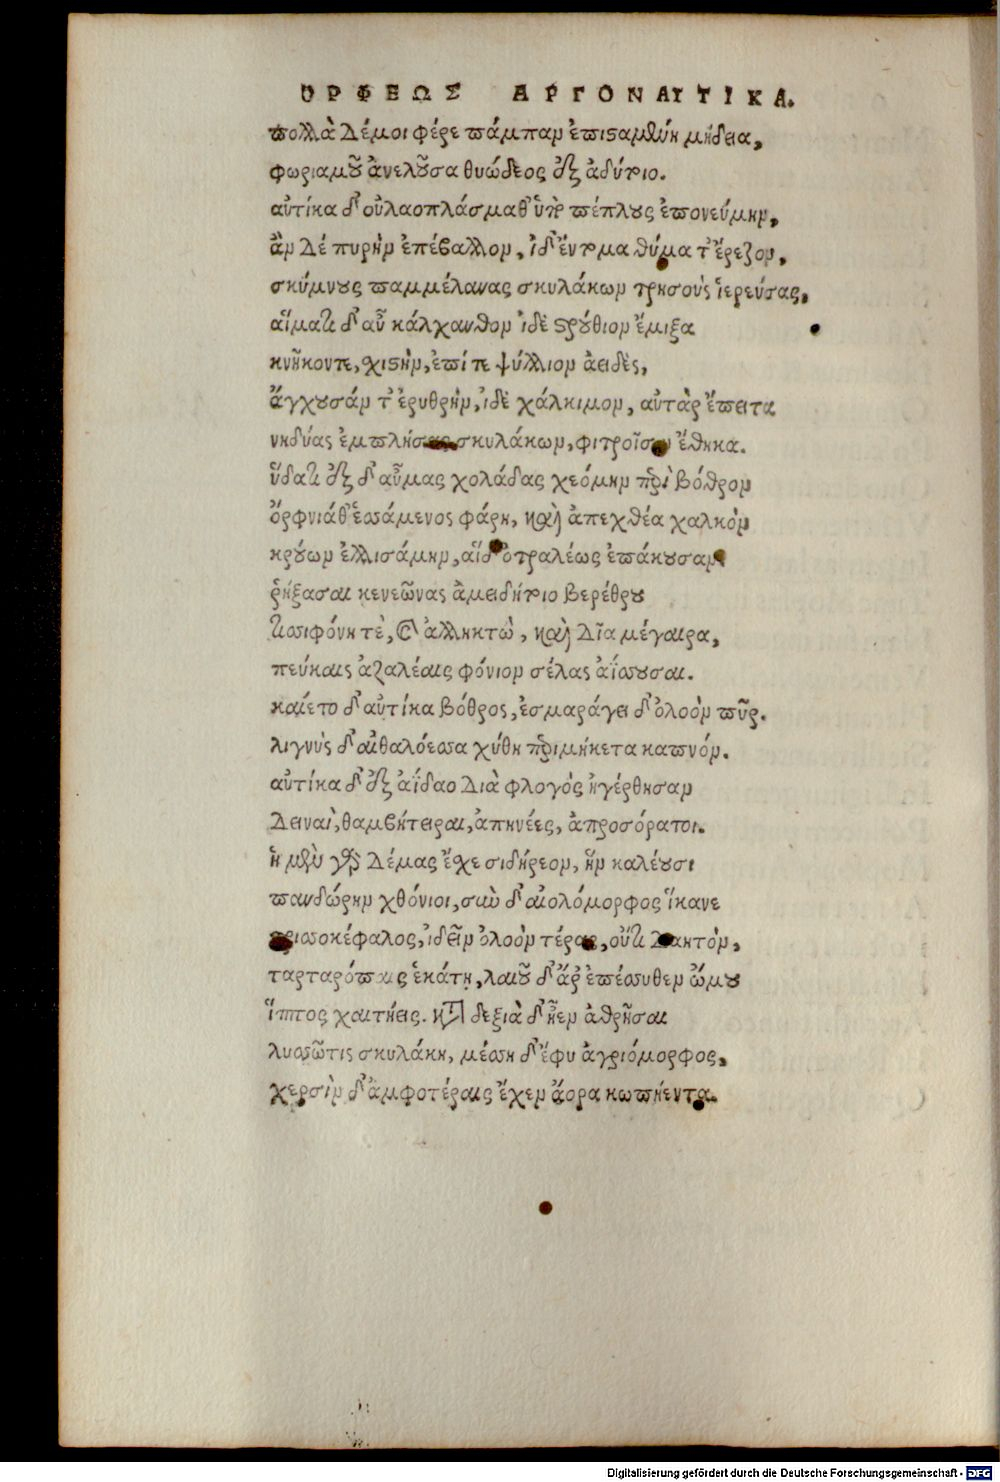 ΟΡΦΕΩΣ ΑΡΓΟΝΑΥΤΙΚΑ.
πολλὰ δέ μοι φέρε πάμπαν ἐπισαμένη μήδεια,
φωριαμοῦ ἀνελοῦσα θυώδεος ἐξ ἀδύτοιο.
αὐτίκα δ' οὐλαοπλάσμαθ' ὑπὸ πέπλους ἐπονεύμην,
ἂν δὲ πυρὴν ἐπέβαλλον, ἰδ' ἔντομα θύματ' ἔρεζον,
σκύμνους παμμέλανας σκυλάκων τρισοὺς ἱερεύσας,
αἵματι δ' αὖ κάλχανθον ἰδὲ στρούθιον ἔμιξα
κνῆκοντε, σχιστὴν, ἐπί τε ψύλλιον ἀειδὲς,
ἄγχουσάν τ' ἐρυθρὴν, ἰδὲ χάλκιμον, αὐτὰρ ἔπειτα
νηδύας ἐμπλήσας σκυλάκων, φιτροῖσιν ἔθηκα.
ὕδατι ἐξ δ' αὖμας χολάδας χεόμην περὶ βόθρον
ὄρφνιάθ' ἑσσάμενος φάρη, καὶ ἀπεχθέα χαλκὸν
κρούων ἐλλισάμην, αἵδ' ὀτραλέως ἐπάκουσαν
ῥήξασαι κενεῶνας ἀμειδήτοιο βερέθρου
τισιφόνη τὲ, καὶ ἀλληκτὼ, καὶ δῖα μέγαιρα,
πεύκαις ἀζαλέαις φόνιον σέλας ἀΐσσουσαι.
καίετο δ' αὐτίκα βόθρος, ἐσμαράγει δ' ὀλοὸν πῦρ.
λιγνὺς δ' αἰθαλόεσσα χύθη περιμήκετα καπνόν.
αὐτίκα δ' ἐξ ἀΐδαο διὰ φλογὸς ἠγέρθησαν
δειναὶ, θαμβήτειραι, ἀπηνέες, ἀπροσόρατοι.
ἡ μὲν γὰρ δέμας ἔχε σιδήρεον, ἣν καλέουσι
πανδώρην χθόνιοι, σὺν δ' αἰολόμορφος ἵκανε
τρισσοκέφαλος, ἰδεῖν ὀλοὸν τέρας, οὔτι δαητὸν,
ταρταρόπαις ἑκάτη, λαιοῦ δ' ἄρ' ἐπέσσυθεν ὤμου
ἵππος χαιτήεις. κατὰ δεξιὰ δ' ἦεν ἀθρῆσαι
λυσσῶτις σκυλάκη, μέσση δ' ἔφυ ἀγριόμορφος,
χερσὶν δ' ἀμφοτέραις ἔχεν ἄορα κωπήεντα.
Digitalisierung gefördert durch die Deutsche Forschungsgemeinschaft - DFG